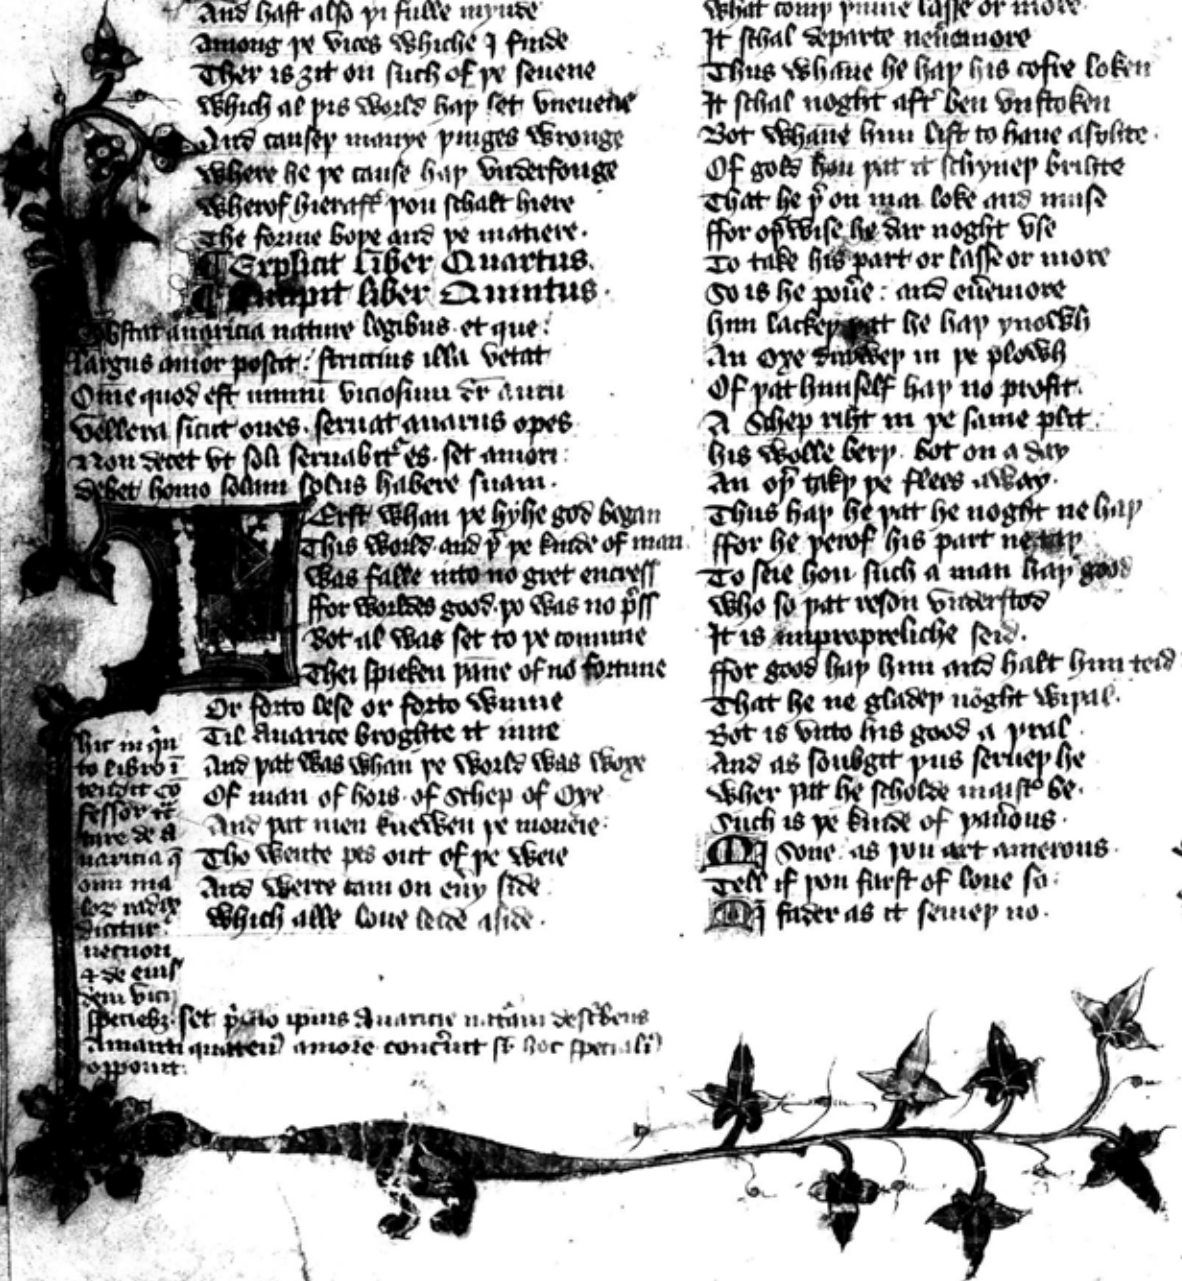 And hast also þi fulle mynde
Among þe vices whiche I finde
Ther is ȝit on such of þe seuene
Which al þis world haþ set vneuene
And causeþ manye þinges wronge
Where he þe cause haþ vnderfonge
Wherof hierafter þou schalt hiere
The forme boþe and þe matiere.
¶ Explicit liber Quartus.
¶ Incipit liber Quintus.
Obstat auaricia nature legibus et que:
Largus amor poscit: striccius illa vetat
Omne quod est nimium viciosum dicitur aurum
Vellera sicut oues. seruat auarus opes
Non decet vt soli seruabitur es. set amori:
debet homo solam solus habere suam.
Ferst whan þe hyhe god began
This world. and þer þe kinde of man
Was falle into no gret encress
ffor worldes good. þo was no press
Bot al was set to þe comune
Thei spieken þane of no fortune
Or forto lese or forto winne
Til Auarice broghte it inne
And þat was whan þe world was woxe
Of man of hors. of Schep of Oxe
And þat men knewen þe moneie.
Tho wente pes out of þe weie
And werre cam on euery side.
Which alle loue leide aside.
hic in quin
to libro in
tendit con
fessor
tare de a
uaricia que
omnium ma
lorum radix
dicitur.
necnon
& de eius
dem vicii
speciebus. set primo ipsius Auaricie naturam describens
Amanti quatenus amorem concernit super hoc specialius
opponit.
What comþ þerinne lasse or more
It schal departe neuermore
Thus whanne he haþ his cofre loken
It schal noght after ben vnstoken
Bot whanne him list to haue a sihte.
Of gold hou þat it schyneþ brihte
That he þer on mai loke and muse
ffor oþerwise he dar noght vse
To take his part or lasse or more
So is he pouere: and euermore
him lackeþ þat he haþ ynowh
An Oxe draweþ in þe plowh
Of þat himself haþ no profit.
A Schep riht in þe same plit
his wolle berþ. bot on a day
An oþer takþ þe flees away.
Thus haþ he þat he noght ne haþ
ffor he þerof his part ne taþ
To seie hou such a man haþ good
Who so þat reson vnderstod
It is impropreliche seid.
ffor good haþ him and halt him teid
That he ne gladeþ noght wiþal.
Bot is vnto his good a þral
And as soubgit þus serueþ he
Wher þat he scholde maister be.
Such is þe kinde of þauerous.
Mi Sone as þou art amerous
Tell if þou farst of loue so.
Mi fader as it semeþ no.